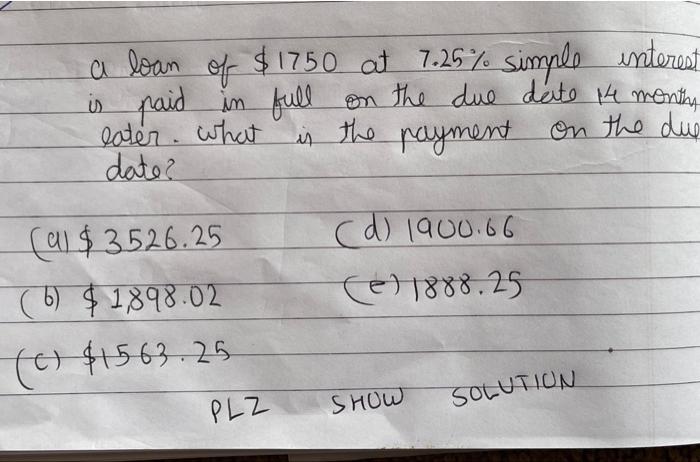 a loan of $1750 at 7.25% simple interest
is paid in full on the due date 14 months
later. what is the payment on the due
date?
(a) $3526.25 (d) 1900.66
(b) $1,898.02 (e) 1888.25
(c) $1563.25
PLZ SHOW SOLUTION